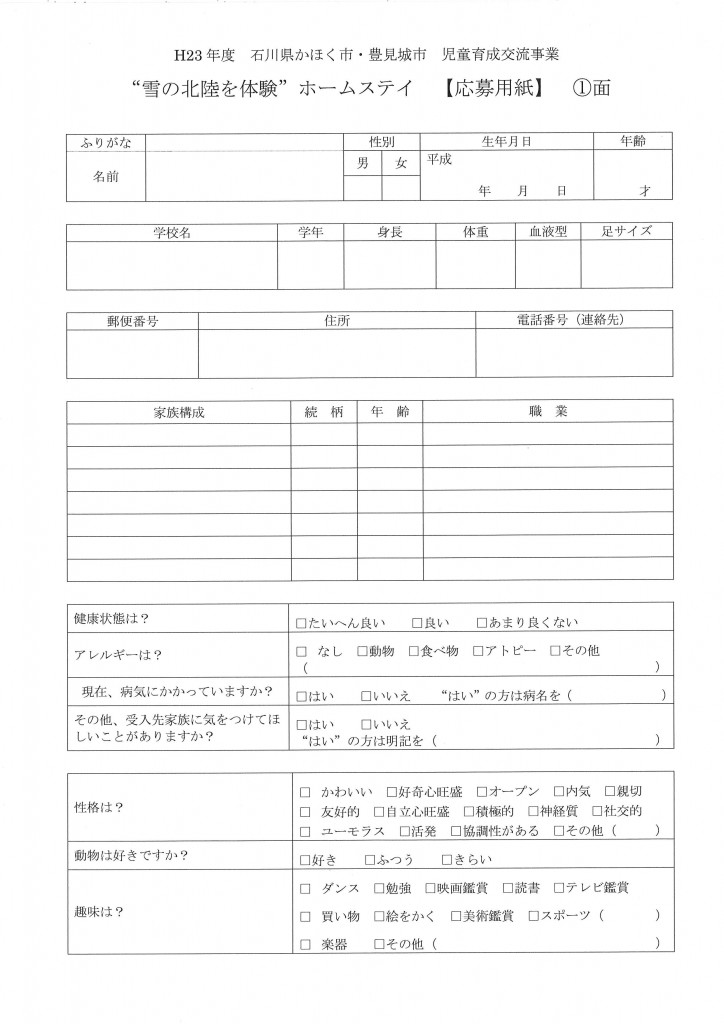 H23年度　石川県かほく市・豊見城市　児童育成交流事業
“雪の北陸を体験”ホームステイ　【応募用紙】　①面
ふりがな
名前
性別
男　女
生年月日
平成
年　月　日
年齢
才
学校名　学年　身長　体重　血液型　足サイズ
郵便番号　住所　電話番号（連絡先）
家族構成　続　柄　年　齢　職　業
健康状態は？　□たいへん良い　□良い　□あまり良くない
アレルギーは？　□ なし　□動物　□食べ物　□アトピー　□その他
（　　　）
現在、病気にかかっていますか？　□はい　□いいえ　“はい”の方は病名を（　　　）
その他、受入先家族に気をつけてほ
しいことがありますか？
□はい　□いいえ
“はい”の方は明記を（　　　）
性格は？
□ かわいい　□好奇心旺盛　□オープン　□内気　□親切
□ 友好的　□自立心旺盛　□積極的　□神経質　□社交的
□ ユーモラス　□活発　□協調性がある　□その他（　　　）
動物は好きですか？　□好き　□ふつう　□きらい
趣味は？
□ ダンス　□勉強　□映画鑑賞　□読書　□テレビ鑑賞
□ 買い物　□絵をかく　□美術鑑賞　□スポーツ（　　　）
□ 楽器　□その他（　　　）